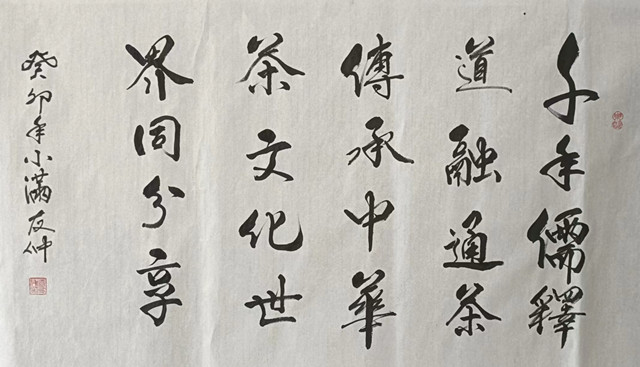 千年儒釋
道融通茶
傳承中華
茶文化世
界同分享
癸卯年小满友仲